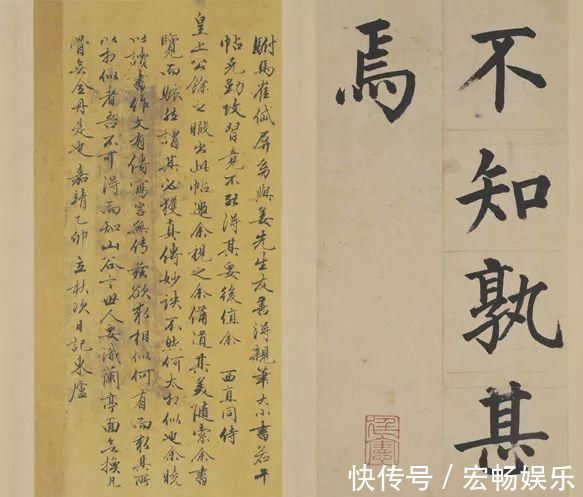 不知孰某
焉
駙馬崔岱屏與姜先生友善得親筆大小書若干
帖克勤攻習竟不能得其妥後值余西直同侍
皇上公餘之暇出此帖邀余視之余備道其美隨索余書
覽而賑然謂其必獲真傳妙訣不然何太相似也余曉
以讀書作文有傳寫字無傳茲欲求相似何有而求其所
以相似者吾不可得而知山谷云世人要識蘭亭面無換凡
骨無金丹是也嘉靖乙卯立秋次日記東廬
快传号/宏畅娱乐